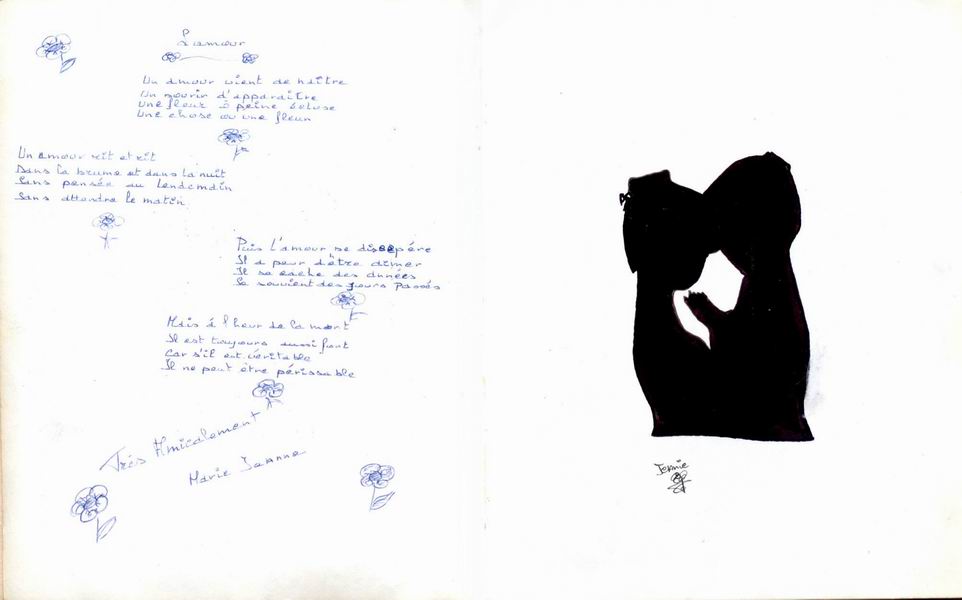 L'amour
Un amour vient de naître
Un mourir d'apparaître
Une fleur à peine éeluse
Une chose ou une fleur
Un amour rit et rit
Dans la brume et dans la nuit
Sans pensée au lendemain
Sans attendre le matin
Puis l'amour se disespére
Il a peur d'être aimer
Il se cache des années
Se souvient des jours passés
Mais á l'heur de la mort
Il est toujours aussi fort
Car s'il est véritable
Il ne peut être périssable
Très Amicalement
Marie Jeanne
Jennie